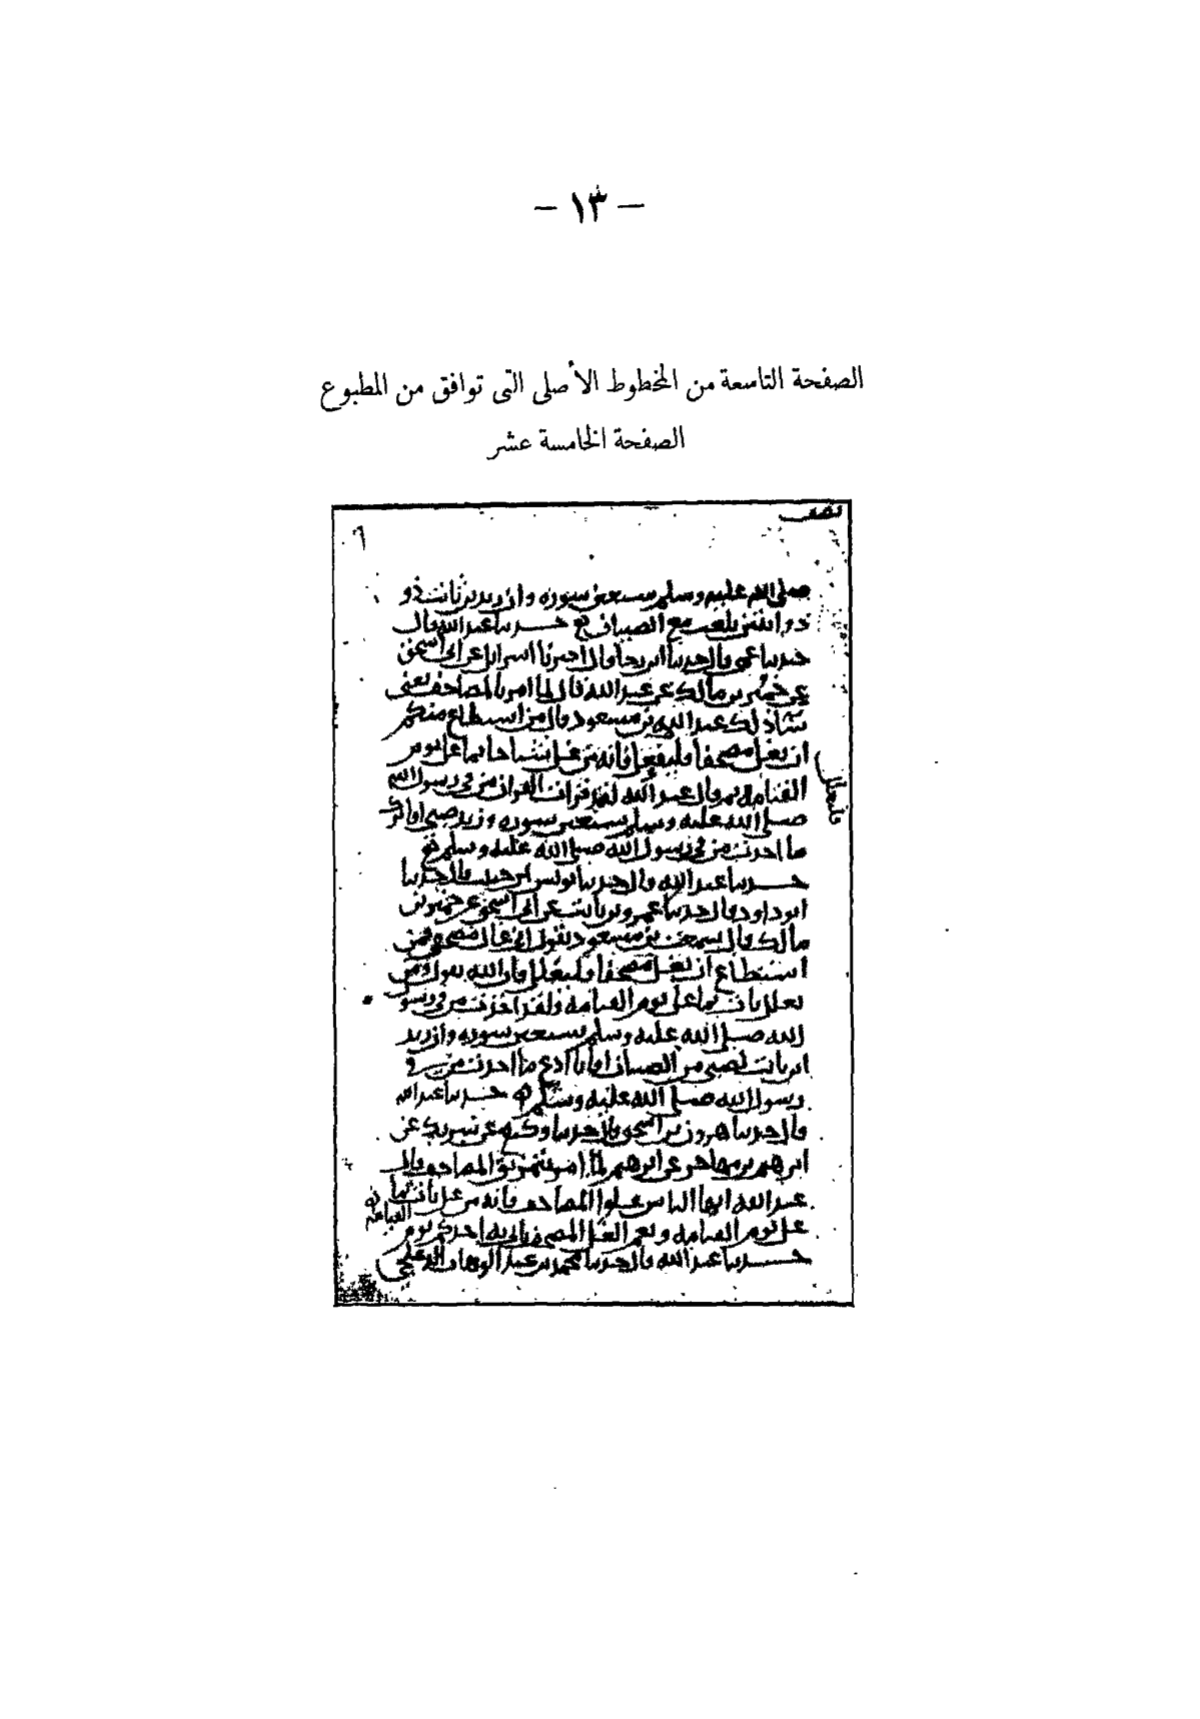 – ١٣ –
الصفحة التاسعة من المخطوط الأصلى التى توافق من المطبوع
الصفحة الخامسة عشر
نصف
٦
صلى الله عليه وسلم سبعين سوره وان زيد بن ثابت ذو
ذوابتين يلعب مع الصبيان حدثنا عبد الله قال
حدثنا عمي قال حدثنا ابن رجا قال اخبرنا اسرائيل عن ابى اسحق
عن خمير بن مالك عن عبد الله قال لما امر بالمصاحف يعنى
ساذلك عبد الله بن مسعود قال من استطاع منكم
ان يغل مصحفا فليفعل فانه من غل شيا جا بما غل يوم
فليغلل
القيامه ثم قال عبد الله لقد قرات القران من في رسول الله
صلى الله عليه وسلم سبعين سوره وزيد صبي افاترك
ما اخذت من في رسول الله صلى الله عليه وسلم
حدثنا عبد الله قال حدثنا يونس بن حبيب قال حدثنا
ابو داود قال حدثنا عمرو بن ثابت عن ابى اسحق عن خمير بن
مالك قال سمعت بن مسعود يقول انى غال مصحفي فمن
استطاع ان يغل مصحفا فليغلل فان الله يقول ومن
يغلل يات بما غل يوم القيامه ولقد اخذت من في رسول
الله صلى الله عليه وسلم سبعين سوره وان زيد
ابن ثابت لصبي من الصبيان افانا ادع ما اخذت من في
رسول الله صلى الله عليه وسلم حدثنا عبد الله
قال حدثنا هرون بن اسحق قال حدثنا وكيع عن شريك عن
ابرهيم بن مهاجر عن ابرهيم لما امر بتمزيق المصاحف قال
عبد الله ايها الناس غلوا المصاحف فانه من غل يات بما
غل يوم القيامه ونعم الغل المصحف ياتى به احدكم يوم
القيامه
حدثنا عبد الله قال حدثنا محمد بن عبد الوهاب الدعلجي